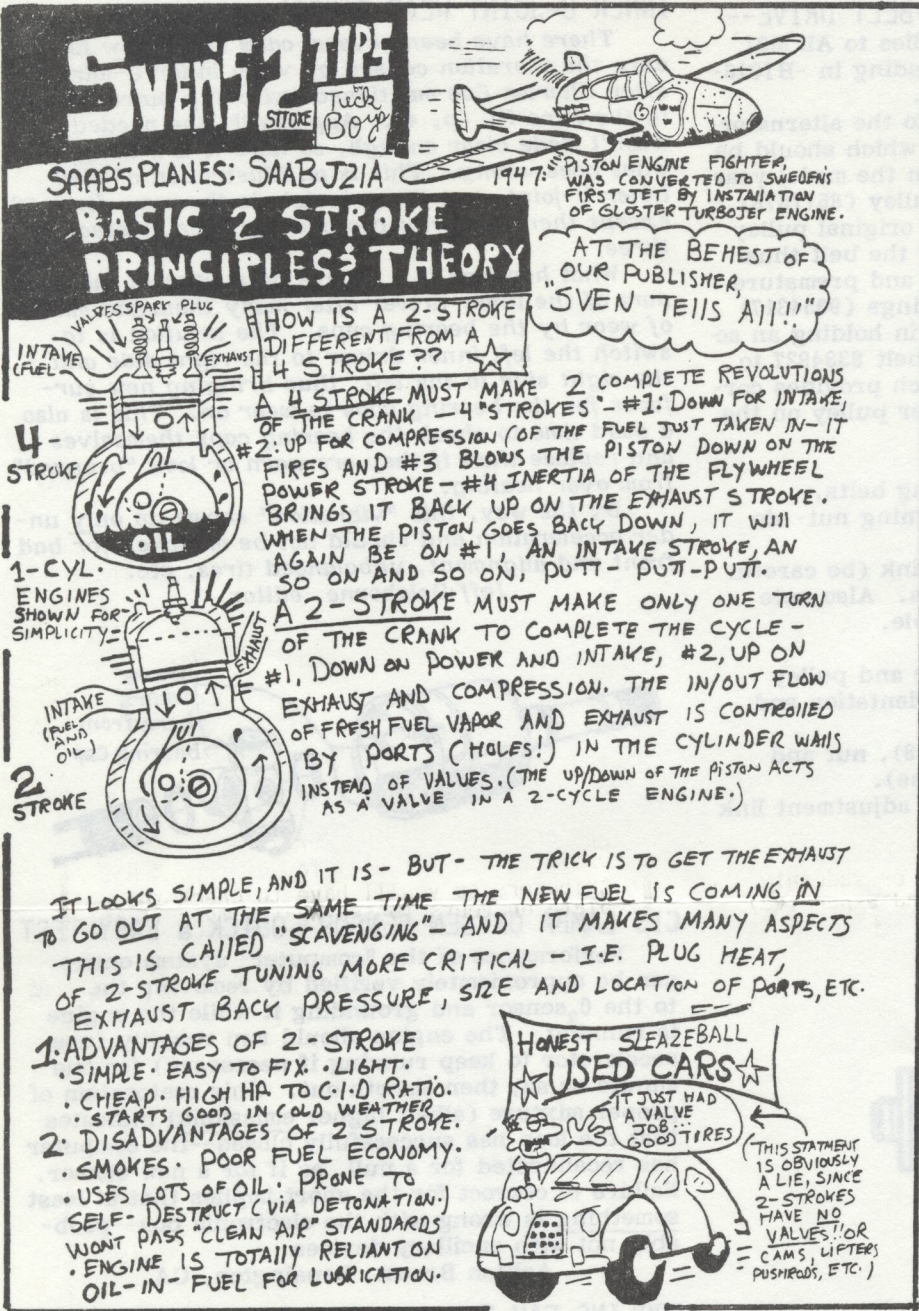 STROKE
Tuck
Boys
SAAB'S PLANES: SAAB J21A
1947:
PISTON ENGINE FIGHTER,
WAS CONVERTED TO SWEDEN'S
FIRST JET BY INSTALLATION
OF GLOSTER TURBOJET ENGINE.
BASIC 2 STROKE
PRINCIPLES & THEORY
AT THE BEHEST OF
OUR PUBLISHER,
"SVEN TELLS ALL"
VALVES
SPARK PLUG
INTAKE
(FUEL)
EXHAUST
4
STROKE
OIL
1-CYL.
ENGINES
SHOWN FOR
SIMPLICITY
HOW IS A 2-STROKE
DIFFERENT FROM A
4 STROKE?
A 4 STROKE MUST MAKE 2 COMPLETE REVOLUTIONS
OF THE CRANK - 4 "STROKES" #1: DOWN FOR INTAKE,
#2: UP FOR COMPRESSION (OF THE FUEL JUST TAKEN IN - IT
FIRES AND #3 BLOWS THE PISTON DOWN ON THE
POWER STROKE - #4 INERTIA OF THE FLYWHEEL
BRINGS IT BACK UP ON THE EXHAUST STROKE.
WHEN THE PISTON GOES BACK DOWN, IT WILL
AGAIN BE ON #1, AN INTAKE STROKE, AN
SO ON AND SO ON, PUTT-PUTT-PUTT.
EXHAUST
INTAKE
(FUEL
AND
OIL)
2
STROKE
A 2 STROKE MUST MAKE ONLY ONE TURN
OF THE CRANK TO COMPLETE THE CYCLE -
#1, DOWN ON POWER AND INTAKE, #2, UP ON
EXHAUST AND COMPRESSION. THE IN/OUT FLOW
OF FRESH FUEL VAPOR AND EXHAUST IS CONTROLLED
BY PORTS (HOLES!) IN THE CYLINDER WALLS
INSTEAD OF VALVES. (THE UP/DOWN OF THE PISTON ACTS
AS A "VALVE" IN A 2-CYCLE ENGINE.)
IT LOOKS SIMPLE, AND IT IS - BUT - THE TRICK IS TO GET THE EXHAUST
TO GO OUT AT THE SAME TIME THE NEW FUEL IS COMING IN
THIS IS CALLED "SCAVENGING" AND IT MAKES MANY ASPECTS
OF 2-STROKE TUNING MORE CRITICAL - I.E. PLUG HEAT,
EXHAUST BACK PRESSURE, SIZE AND LOCATION OF PORTS, ETC.
1. ADVANTAGES OF 2-STROKE:
· SIMPLE · EASY TO FIX · LIGHT ·
· CHEAP · HIGH HP TO C.I.D. RATIO.
· STARTS GOOD IN COLD WEATHER
2. DISADVANTAGES OF 2-STROKE:
· SMOKES · POOR FUEL ECONOMY.
· USES LOTS OF OIL · PRONE TO
SELF-DESTRUCT (VIA DETONATION.)
WONT PASS "CLEAN AIR" STANDARDS
· ENGINE IS TOTALLY RELIANT ON
OIL-IN-FUEL FOR LUBRICATION.
HONEST SLEAZEBALL
USED CARS
IT JUST HAD
A VALVE
JOB!!
GOOD TIRES
(THIS STATMENT
IS OBVIOUSLY
A LIE, SINCE
2-STROKES
HAVE NO
VALVES!! OR
CAMS, LIFTERS
PUSHRODS, ETC.)